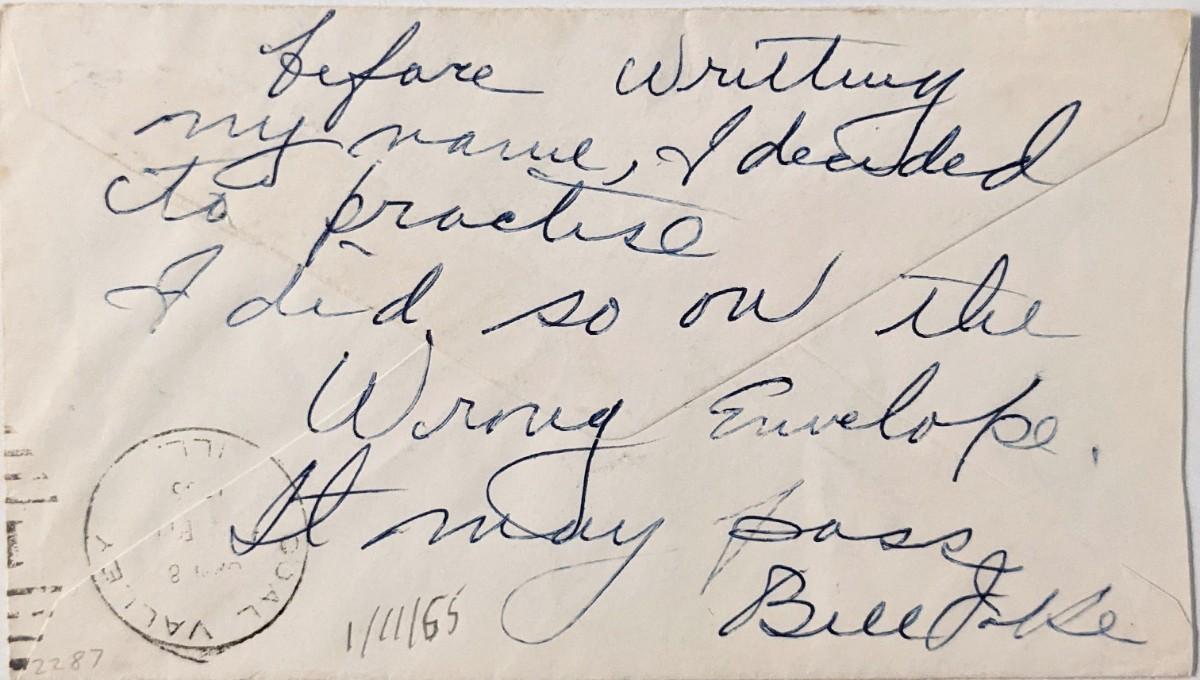 before writting
my name, I decided
to practise
I did so on the
Wrong Envelope.
It may pass
Bill Joke
COAL VALLEY
ILL.
8
1/11/65
2287